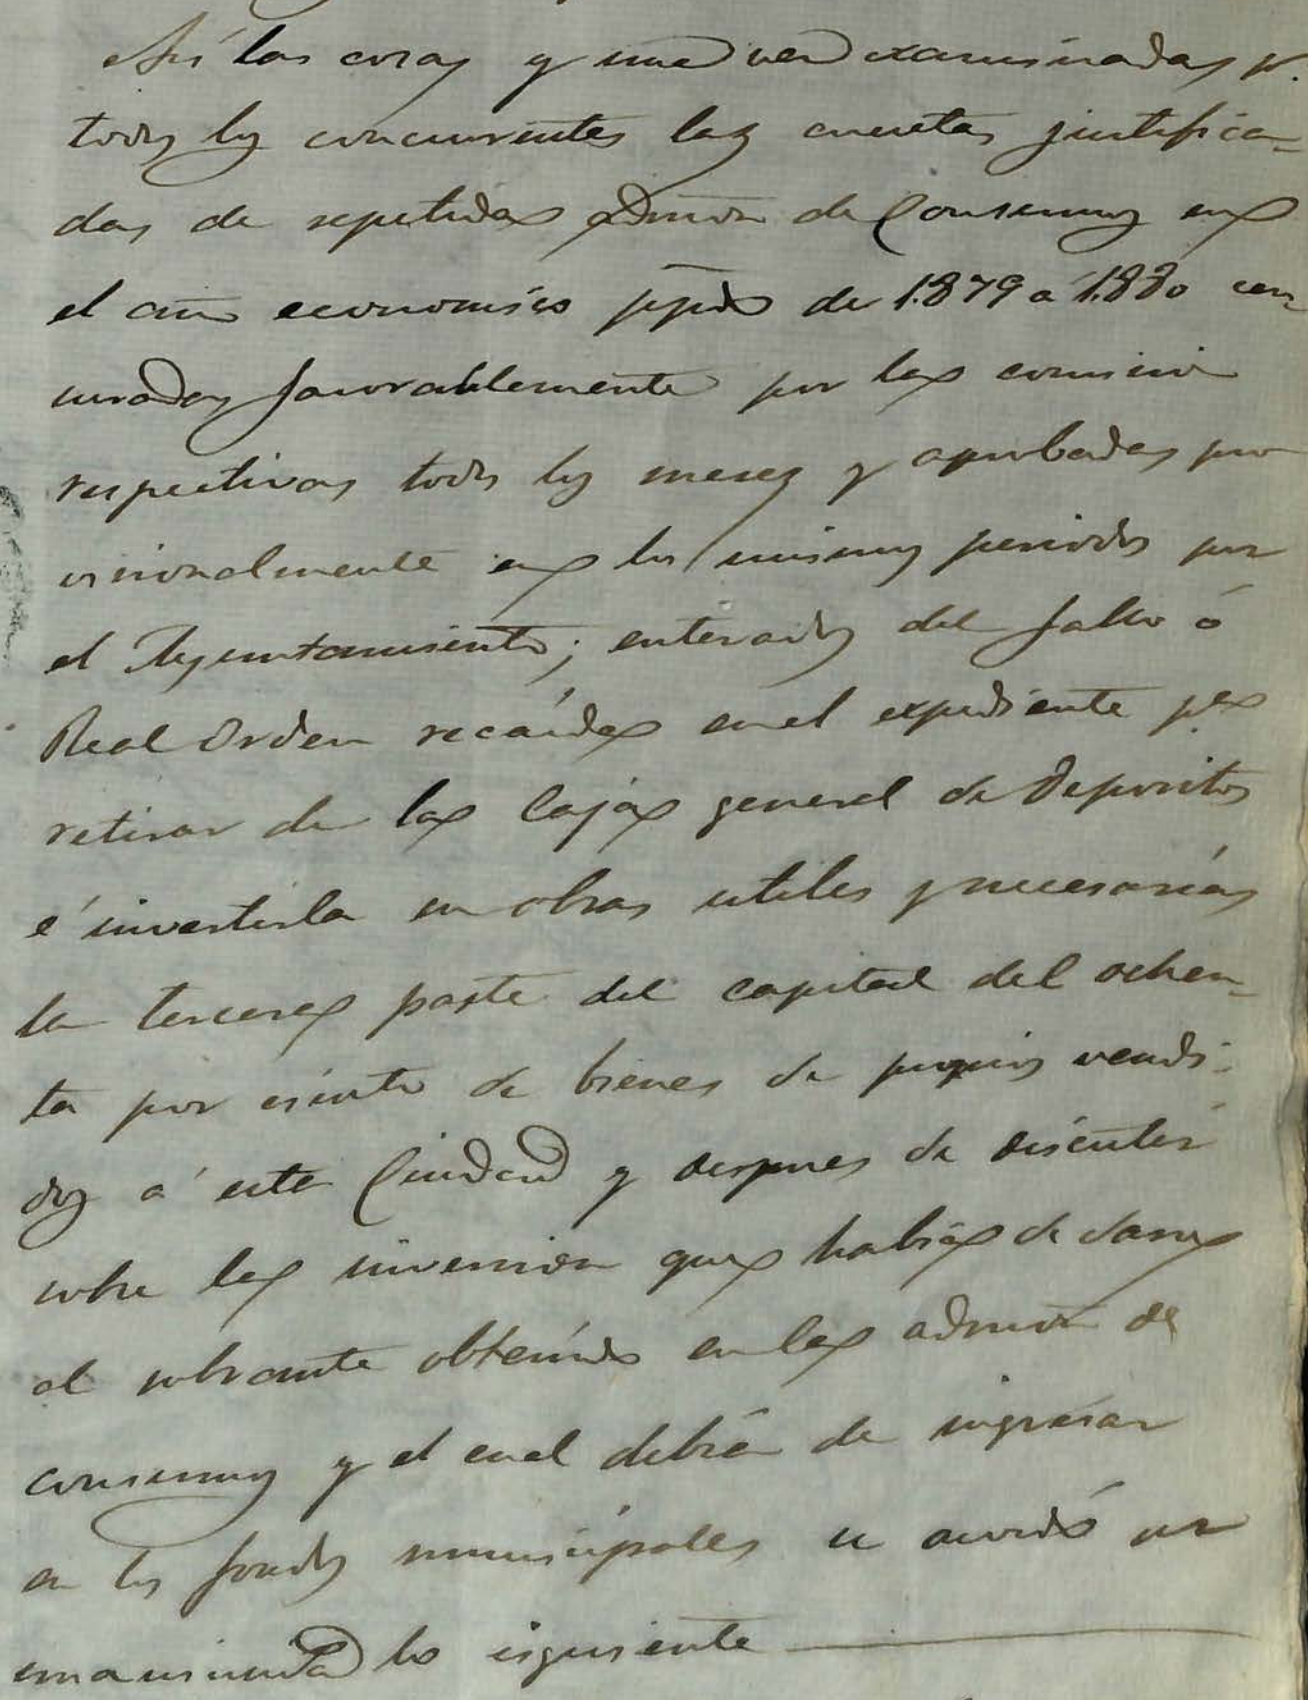 Asi las cosas y una vez examinadas p.r
todos los concurrentes las cuentas justifica=
das de repetida Admon de Consumos en
el año economico ppdo de 1.879 a 1.880 cen=
suradas favorablemente por la comision
respectivas todos los meses y aprobadas pro
visionalmente en los mismos periodos por
el Ayuntamiento; enterados del fallo ó
Real Orden recaída en el expediente p.a
retirar de la Caja general de Depositos
é invertirla en obras utiles y necesarias
la tercera parte del capital del ochen=
ta por ciento de bienes de propios vendi=
dos á esta Ciudad y despues de discutir
sobre la inversion que habia de darse
al sobrante obtenido en la admon de
consumos y el cual debia de ingresar
en los fondos municipales se acordó por
unanimidad lo siguiente